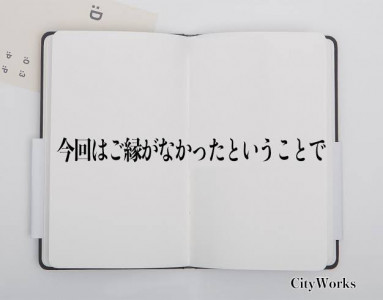 :D
:O :3
:p :P
今回はご縁がなかったということで
CityWorks